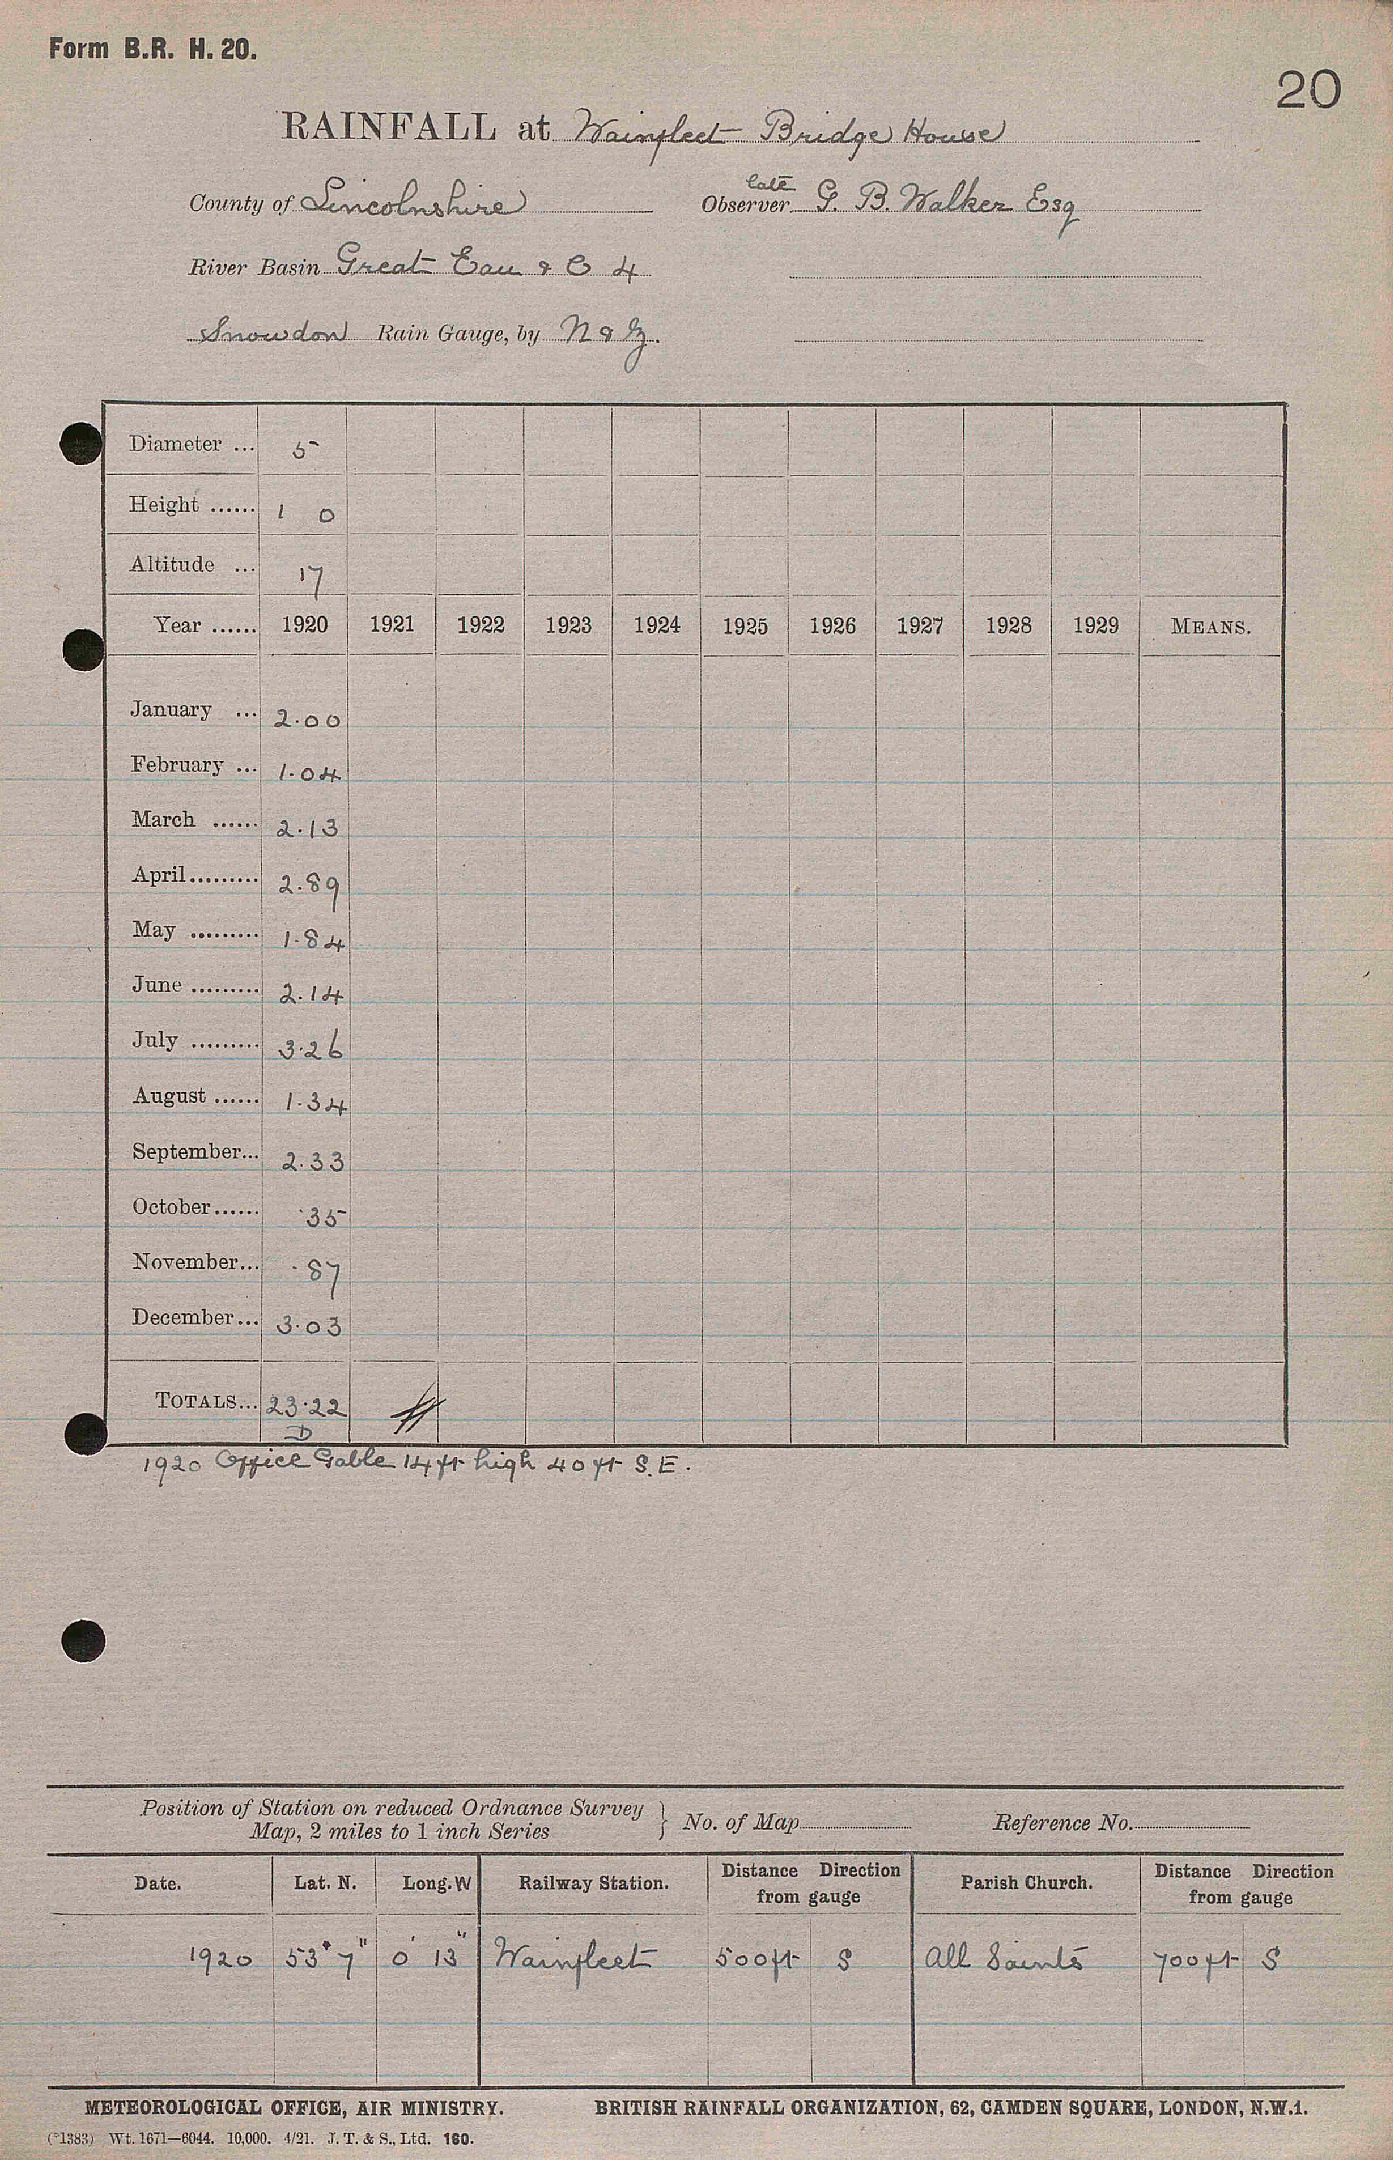 Form B.R. H. 20.
20
RAINFALL at Wainfleet Bridge House
County of Lincolnshire
late
Observer G. B. Walker Esq
River Basin Great Eau & C 4
Snowdon Rain Gauge, by N & Z.
Diameter ... 5
Height ...... 1 0
Altitude ... 17
Year ...... 1920 1921 1922 1923 1924 1925 1926 1927 1928 1929 MEANS.
January ... 2.00
February ... 1.04
March ...... 2.13
April......... 2.89
May ......... 1.84
June ......... 2.14
July ......... 3.26
August ...... 1.34
September... 2.33
October...... .35
November... .87
December... 3.03
TOTALS... 23.22
D
1920 Office Gable 14 ft high 40 ft S.E.
Position of Station on reduced Ordnance Survey
Map, 2 miles to 1 inch Series } No. of Map Reference No.
Date. Lat. N. Long. W Railway Station. Distance Direction from gauge Parish Church. Distance Direction from gauge
1920 53° 7" 0' 13" Wainfleet 500ft S All Saints 700ft S
METEOROLOGICAL OFFICE, AIR MINISTRY. BRITISH RAINFALL ORGANIZATION, 62, CAMDEN SQUARE, LONDON, N.W.1.
(*1383) Wt. 1671—6044. 10,000. 4/21. J. T. & S., Ltd. 160.